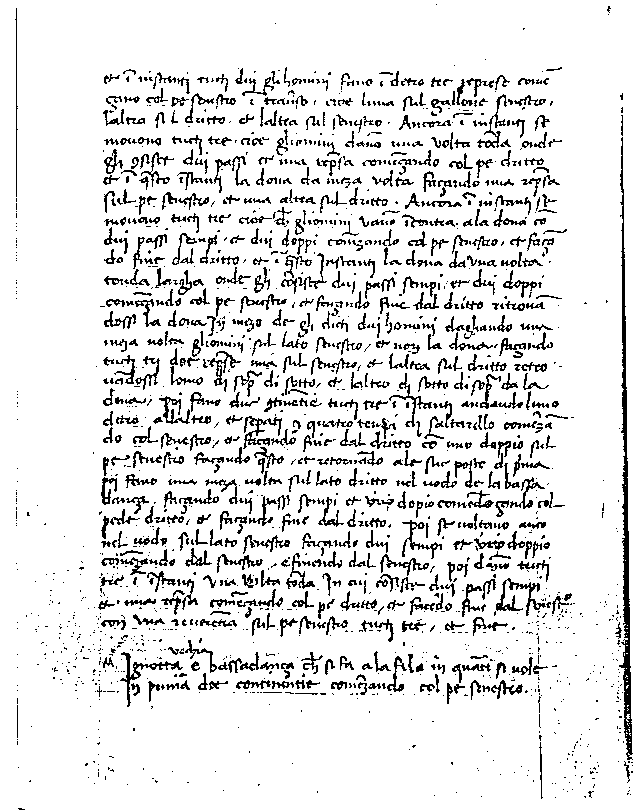 et ī instanti tucti dui gli homini fano īdetro tre represe comē
zano col pe senestro ī trauerso, cioe l'una sul gallone senestro,
l'altra sul dritto, et l'altra sul senestro. Ancora ī instanti se
movono tucti tre, cioe gli omini dano una volta tonda onde
gli cōsiste dui passi et una rēpsa comenzando col pe dritto
et ī q̄sto īstanti la dona da meza volta façando una rēpsa
sul pe senestro, et una altra sul dritto. Ancora ī instanti se
movono tucti tre cioe gliomini vano īcontra ala dona cō
dui passi sempi, et dui doppi comēzando col pe senestro, et façē
do fine dal dritto, et ī q̄sto Instanti la dona da una volta
tonda largha onde gli cōsiste dui passi sempi, et dui doppi
comēzando col pe senestro, et façando fine dal dritto ritrovā
dossi la dona In mezo de gli dicti dui homini daghando una
meza volta gliomini sul lato senestro, et non la dona, façando
tucti tri doe rēpse una sul senestro, et laltra sul dritto retro
vādossi lomo di sop̄ di sotto, et laltro di sotto di sop̄ da la
dona, poi fano due ztinētie tucti tre ī īstanti andando luno
detro allaltro, et sepati quatro tempi di saltarello comēzā
do col senestro, et façando fine dal dritto cō uno doppio sul
pe senestro façando q̄sto, et retornādo ale sue poste di p̄ma
poi fano una meza volta sul lato dritto nel vodo de la bassa
danza, façando dui passi sempi et uno dopio comēzando col
pede dritto, et façando fine dal dritto, poi se voltano anco
nel vodo sul lato senestro façando dui sempi et uno doppio
comēzando dal senestro, e finendo dal senestro, poi dāno tucti
tre ī īstanti una volta tōda In cui cōsiste dui passi sempi
et una rēpsa comēzando col pe dritto, et facēdo fine dal senestro
con una reverētia sul pe senestro tucti tre, et fine.
vechia
Ignotta e bassadanza ch̄ si fa a la fila in quāti si vole
In p̄mīa doe continentie comēzando col pe senestro.